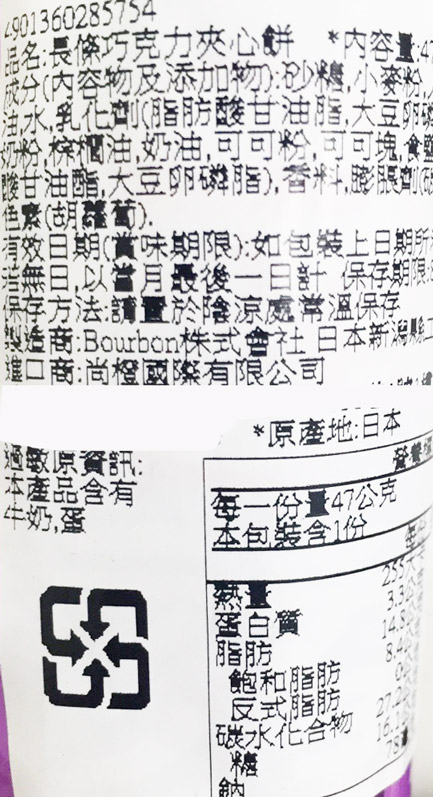 4901360285754
品名:長條巧克力夾心餅 *內容量:47
成分(內容物及添加物):砂糖,小麥粉,
油,水,乳化劑(脂肪酸甘油脂,大豆卵磷
奶粉,棕櫚油,奶油,可可粉,可可塊,食鹽
酸甘油酯,大豆卵磷脂),香料,膨脹劑(碳
色素(胡蘿蔔).
有效日期(賞味期限):如包裝上日期所
註無日,以當月最後一日計 保存期限:
保存方法:請置於陰涼處常溫保存
製造商:Bourbon株式會社 日本新潟縣工
進口商:尚橙國際有限公司
*原產地:日本
過敏原資訊:
本產品含有
牛奶,蛋
營養標
每一份量47公克
本包裝含1份
每份
熱量 255大
蛋白質 3.3公
脂肪 14.8
飽和脂肪 8.4
反式脂肪 0
碳水化合物 27.2
糖 16.1
鈉 78